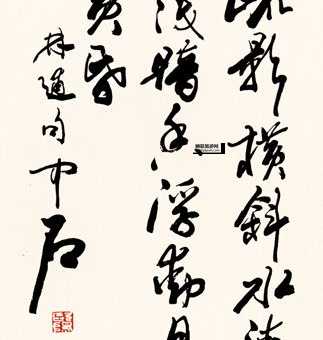 疏影横斜水清
浅暗香浮動月
黄昏
林逋句中石